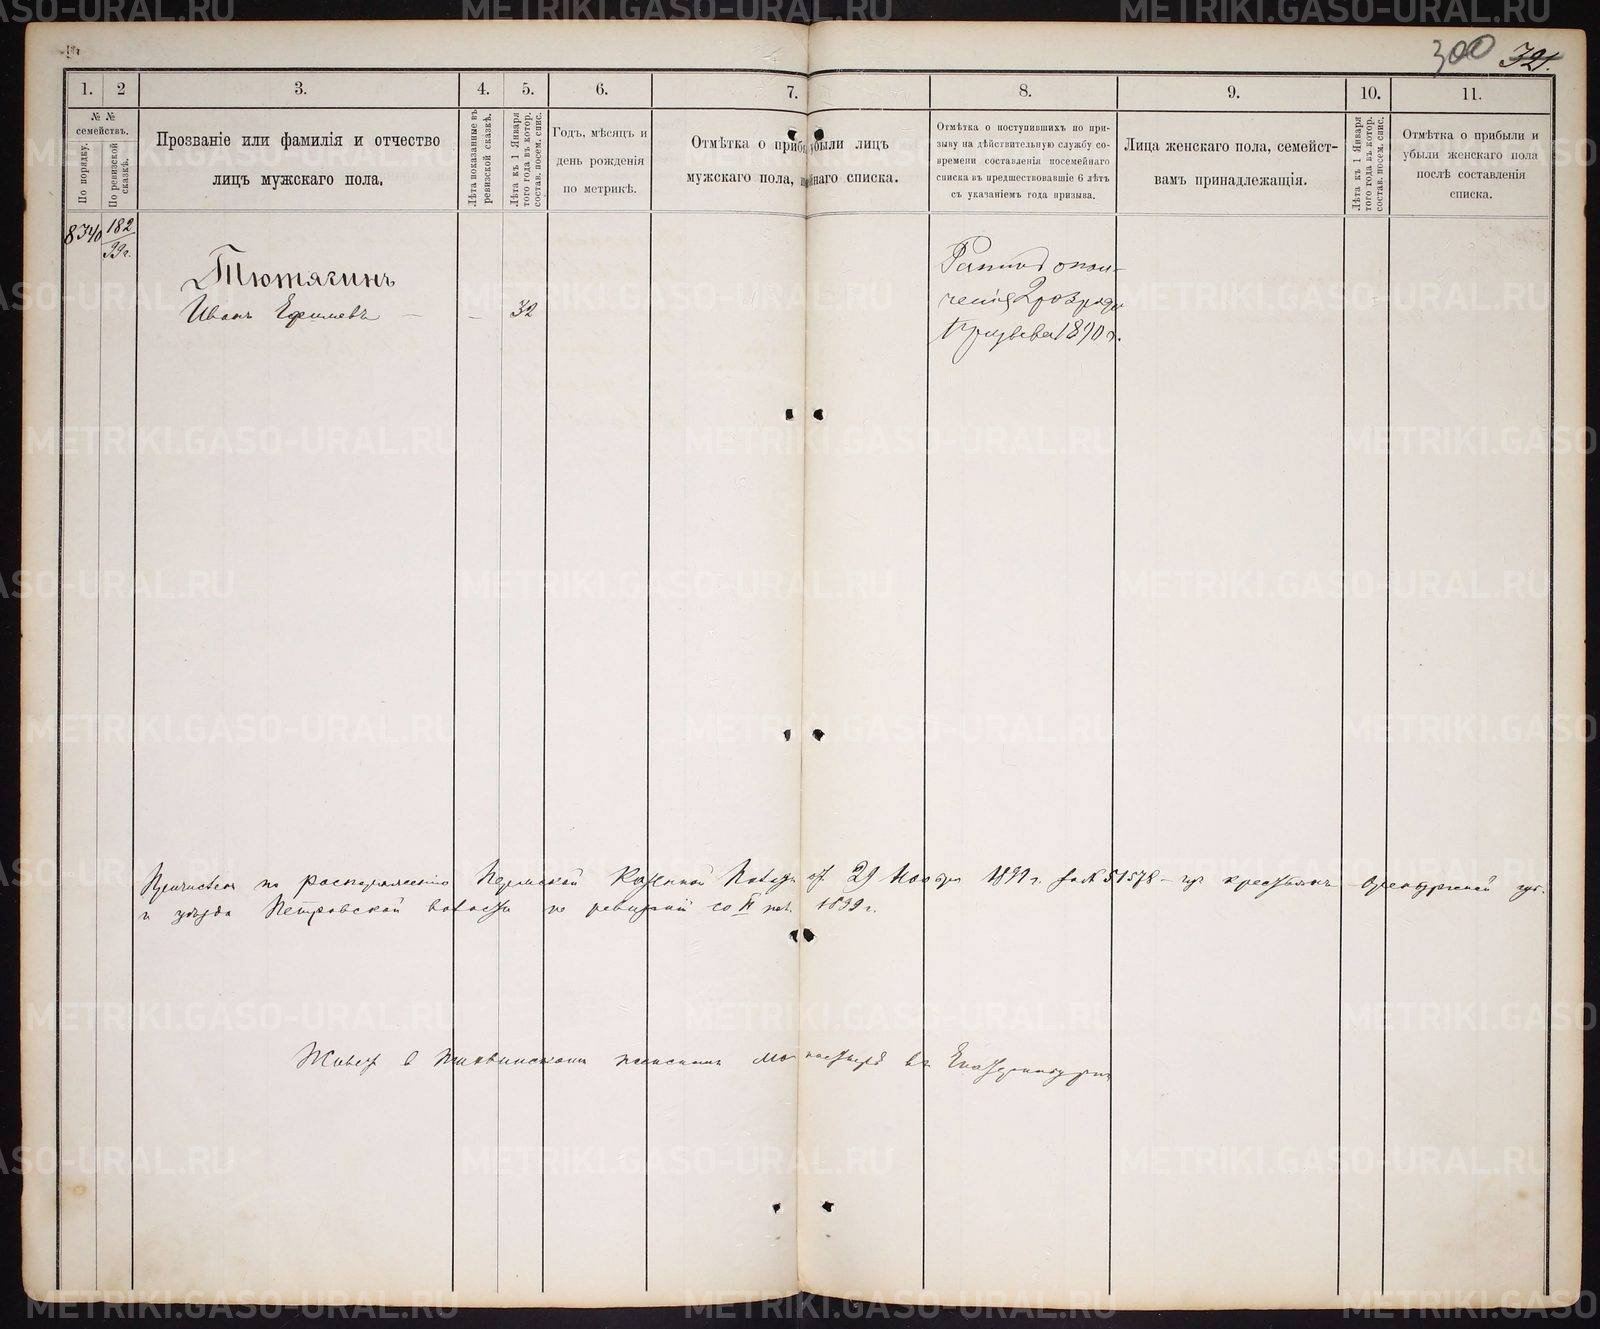 300 321.
1. 2 3. 4. 5. 6. 7. 8. 9. 10. 11.
№ № семействъ.
По порядку.
По ревизской сказкѣ.
Прозваніе или фамилія и отчество
лицъ мужскаго пола.
Лѣта показанные въ
ревизской сказкѣ.
Лѣта къ 1 Января
того года въ котор.
состав. посем. спис.
Годъ, мѣсяцъ и
день рожденія
по метрикѣ.
Отмѣтка о приб убыли лицъ
мужскаго пола, йнаго списка.
Отмѣтка о поступившихъ по при-
зыву на дѣйствительную службу со-
времени составленія посемейнаго
списка въ предшествовавшіе 6 лѣтъ
съ указаніемъ года призыва.
Лица женскаго пола, семейст-
вамъ принадлежащія.
Лѣта къ 1 Января
того года въ котор.
состав. посем. спис.
Отмѣтка о прибыли и
убыли женскаго пола
послѣ составленія
списка.
8340 182
99 г.
Тютягинъ
Иванъ Ефимовъ — — 32
Ратник опол-
ченія 2 розряда
Призыва 1890 г.
Причислен по распоряжению Пермской Казенной Палаты от 29 Ноября 1899 г. за № 51578 — из крестьян Оренбургской губ.
и уезда Петровской волости по ревизской со II пол. 1899 г.
Живет в Тихвинском женском монастыре въ Екатеринбурге
METRIKI.GASO-URAL.RU